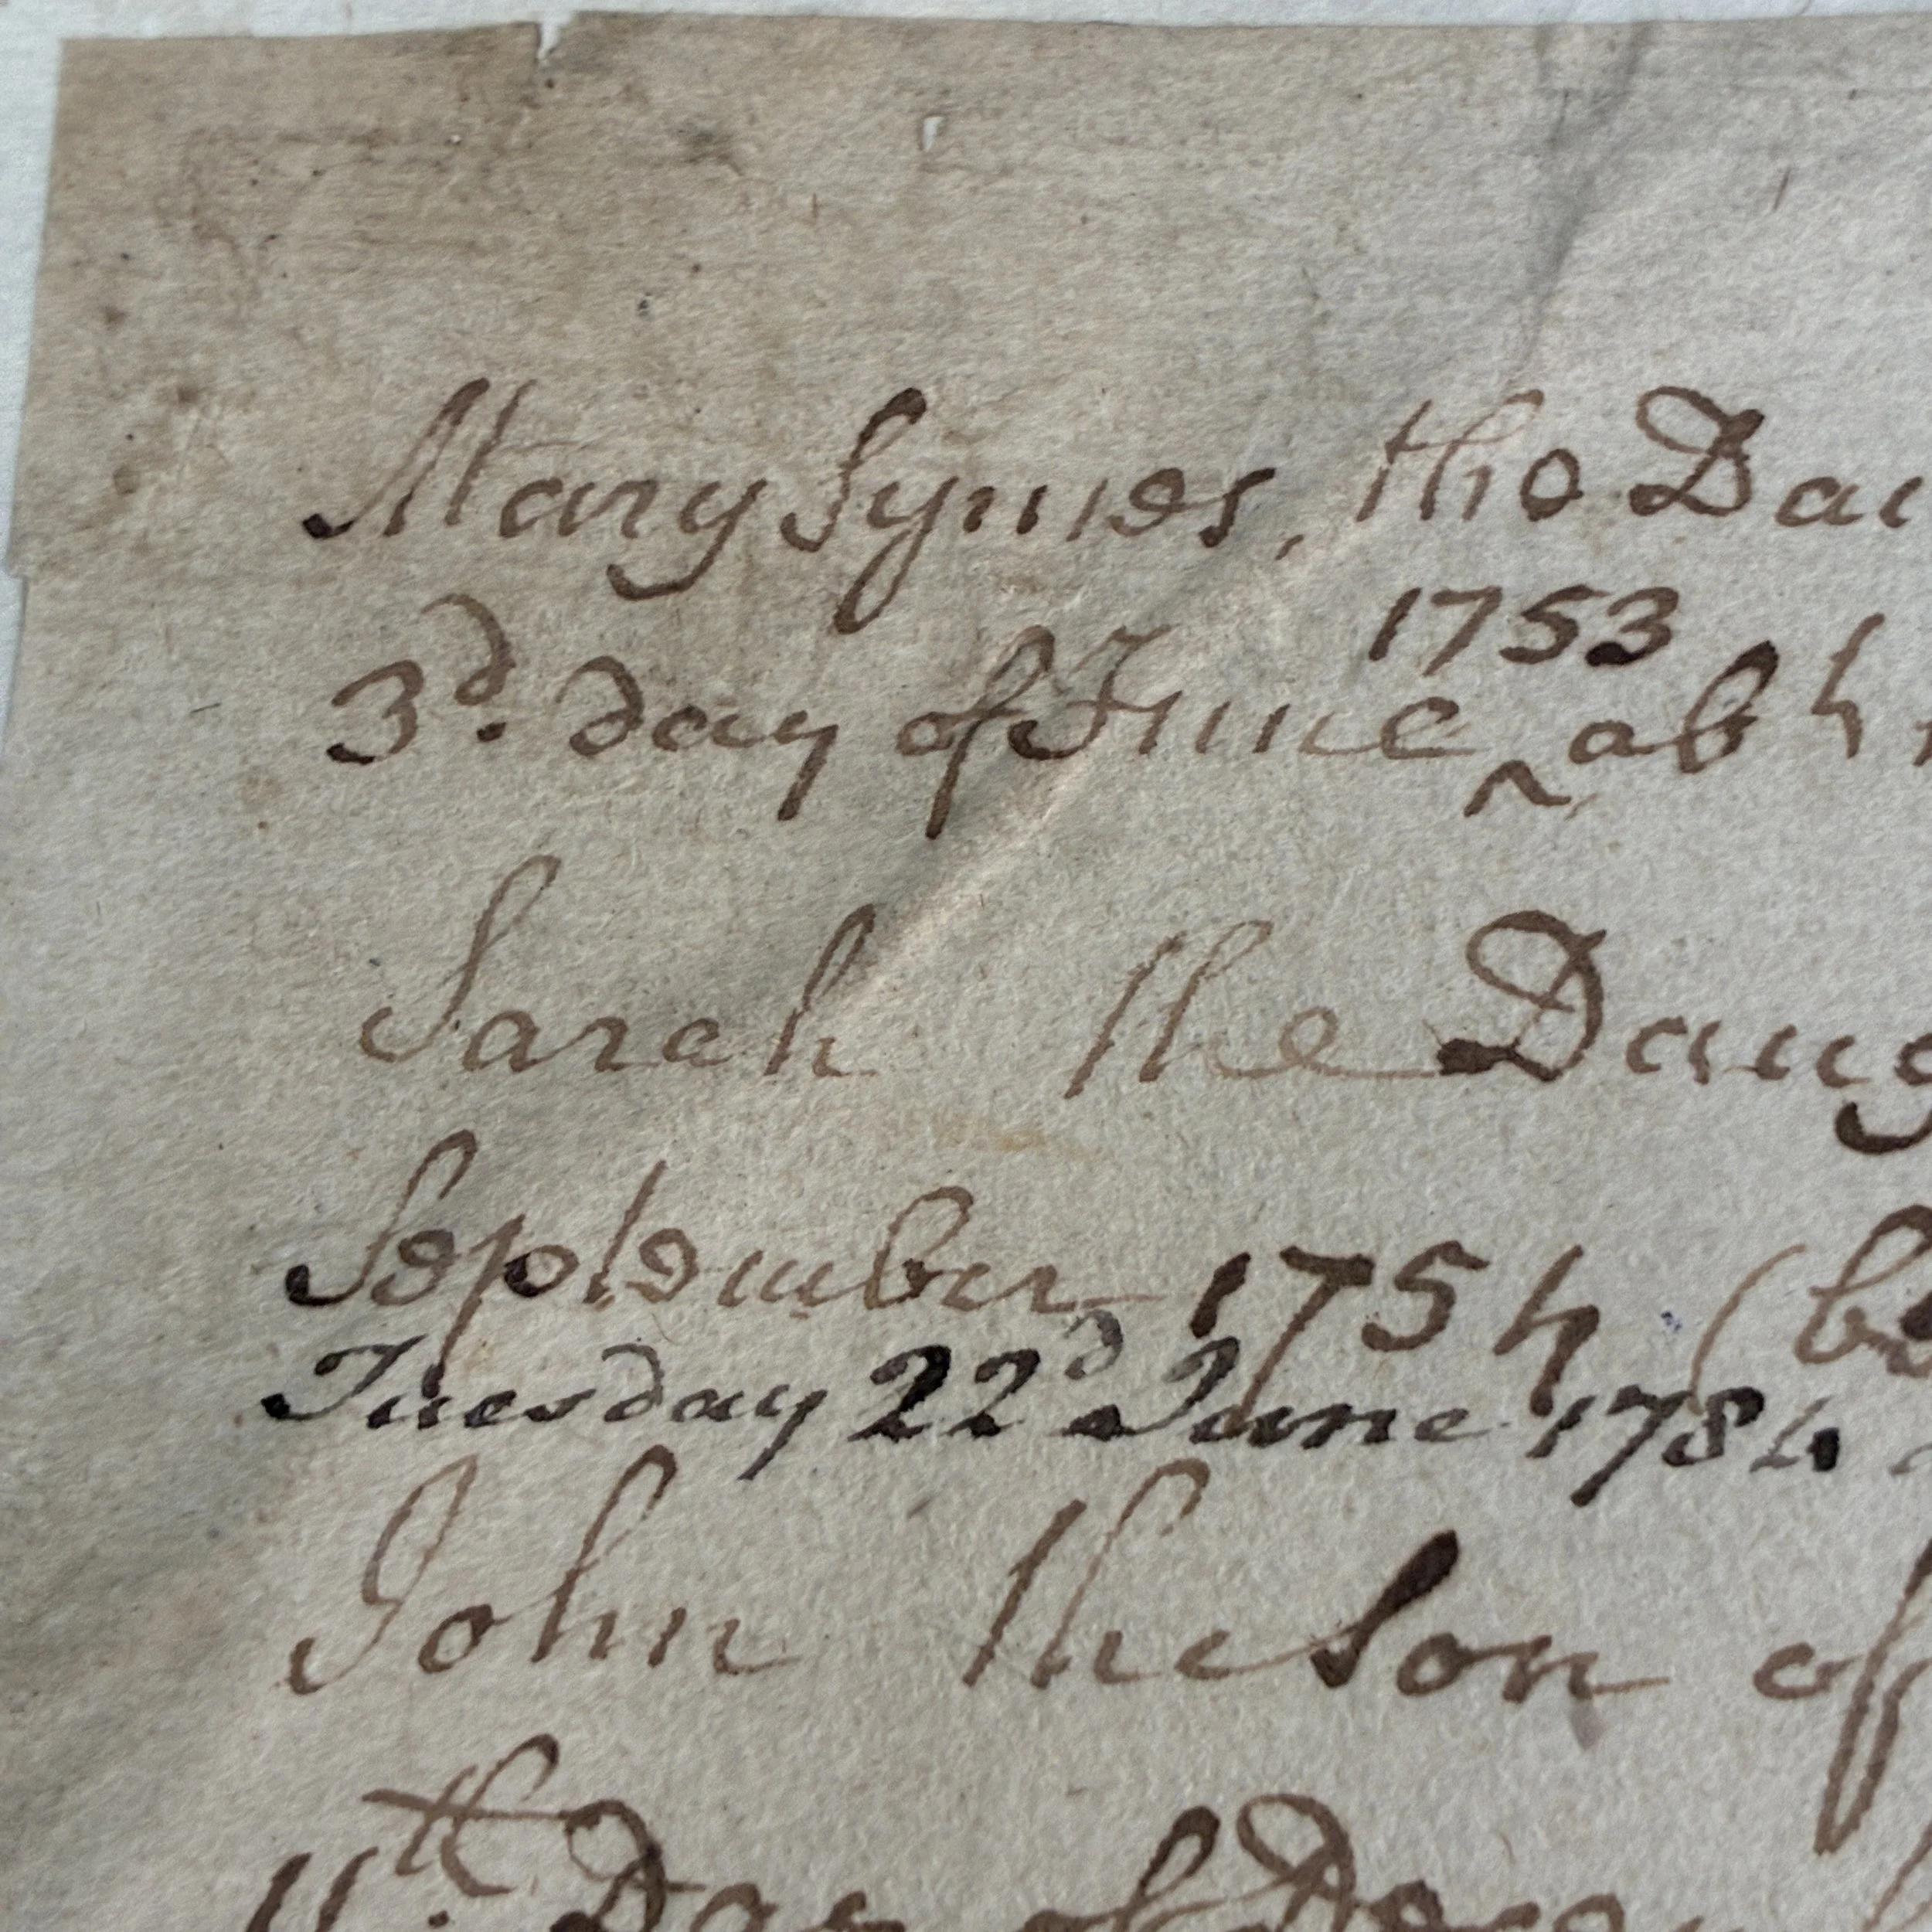 Mary Symes, the Dau
1753
3d. day of June ^ ab h
Sarah the Daug
September 1754 (be
Tuesday 22d June 1784
John the Son of
11th. Day of Dece